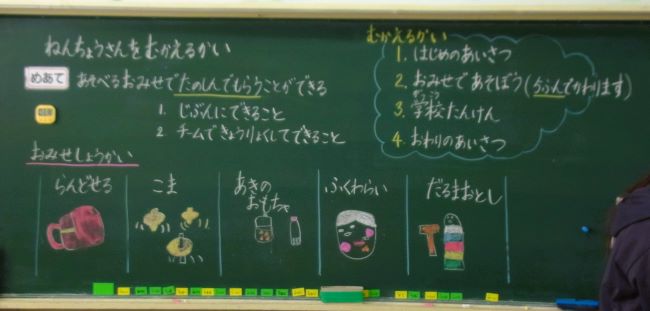 ねんちょうさんをむかえるかい
めあて
あそべるおみせでたのしんでもらうことができる
1. じぶんにできること
2. チームできょうりょくしてできること
むかえるかい
1. はじめのあいさつ
2. おみせであそぼう(5ふんでかわります)
がっこう
3. 学校たんけん
4. おわりのあいさつ
おみせしょうかい
らんどせる
こま
あきの
おもちゃ
ふくわらい
だるまおとし